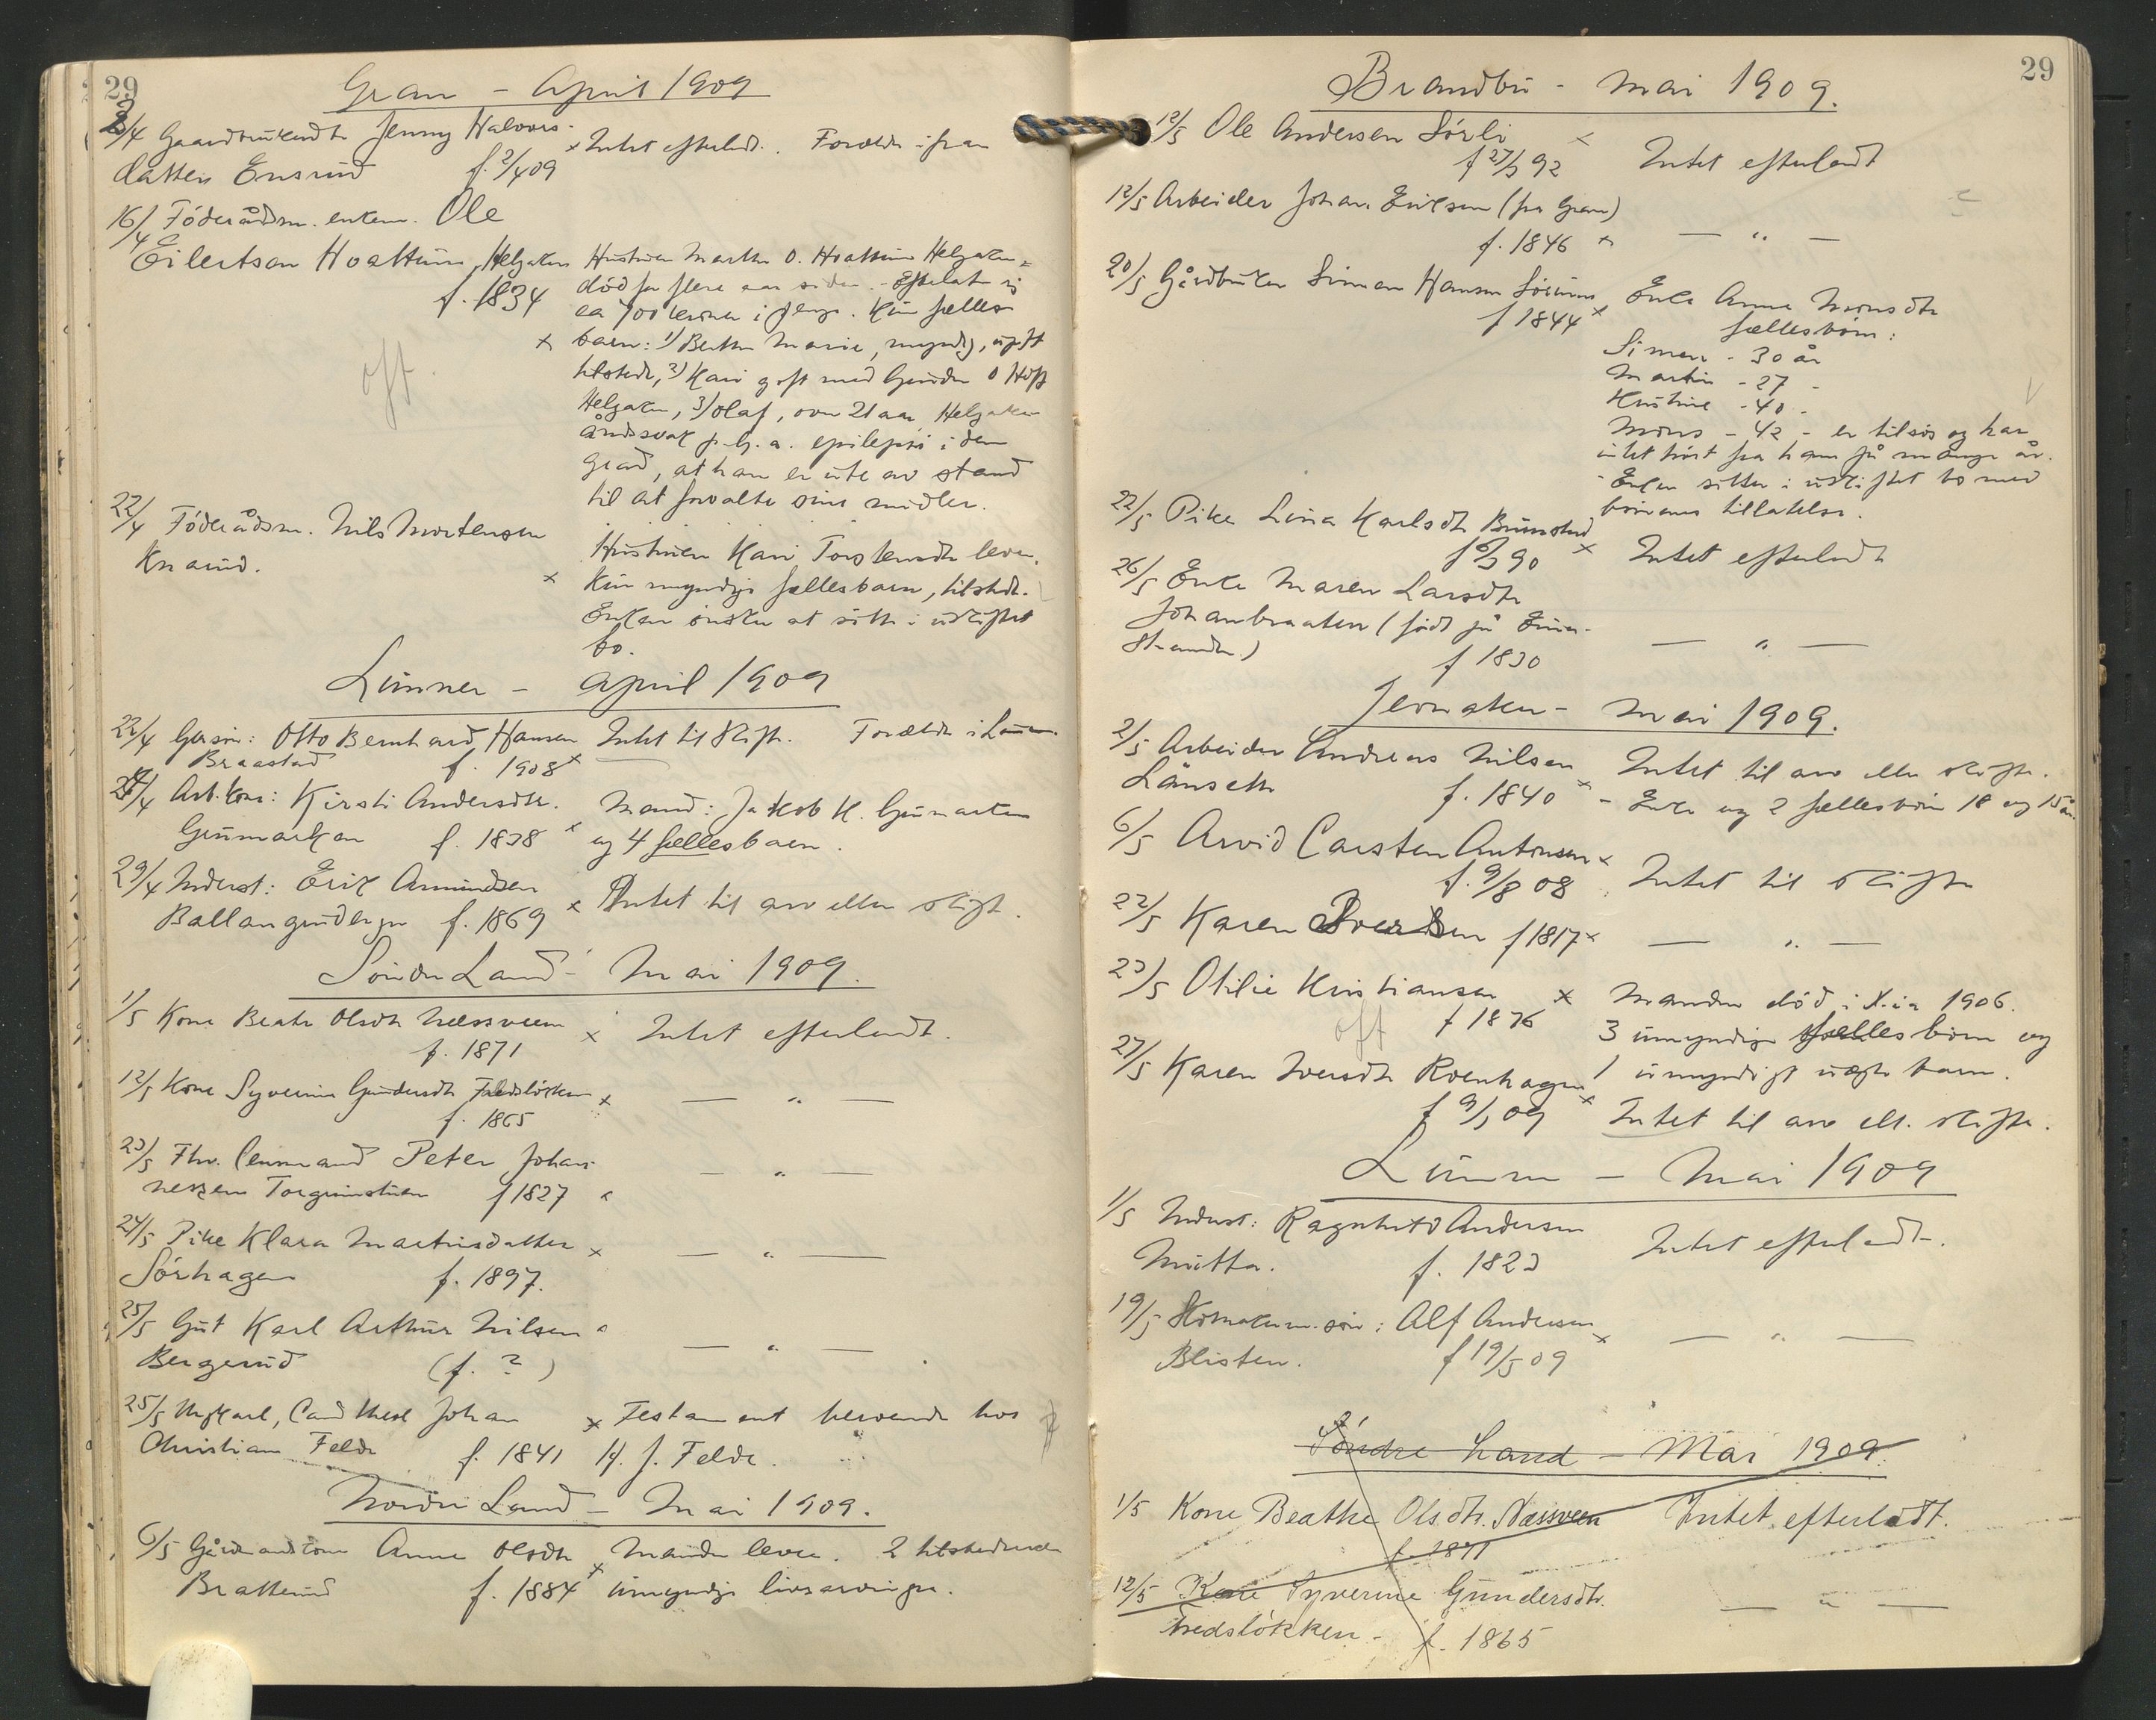 29
Gran - April 1909
3/4 Gaardbrukerdt. Jenny Halvors-
datter Ensrud f. 2/4 09
× Intet efterladt. Forældre i Gran
16/4 Föderådsm. enkem. Ole
Eilertsen Hvattum, Helgaken
f. 1834
Hustruen Marthe O. Hvattum Helgaken
död for flere aar siden. - Efterlat sig
ca 700 kroner i penge. Kun fælles-
× barn: 1) Berthe Marie, myndig, ugift
tilstede, 2) Kari gift med Gudm O Hoff
Helgaken, 3) Olaf, over 21 aar, Helgaken
åndssvak p.g.a. epilepsi i den
grad, at han er ute av stand
til at forvalte sine midler.
off.
22/4 Föderådsm. Nils Mortensen
Knarud.
Hustruen Kari Torstensdtr lever.
× Kun myndige fællesbarn, tilstede.
Enken önsker at sitte i uskiftet
bo.
Lunner - april 1909
22/4 Gersön: Otto Bernhard Hansen
Braastad f. 1908 ×
Intet til skifte. Forældre i Lunner.
24/4 Arb.kone: Kirsti Andersdtr.
Grinmarken f. 1838 ×
Mand: Jakob K. Grinmarken
og 4 fællesbarn.
29/4 Inderst: Erik Amundsen
Ballangrudeie f. 1869 ×
Intet til arv eller skifte.
Söndre Land - Mai 1909.
1/5 Kone Beate Olsdtr Næssveen
f. 1871
× Intet efterladt.
12/5 Kone Syverine Gundersdtr Fredslökken ×
f. 1865
— " —
23/5 Fhv. lensmand Peter Johan-
nessen Torgunstuen f 1827 ×
— " —
24/5 Pike Klara Martinsdatter ×
Sörhagen f. 1897.
— " —
25/5 Gut Karl Arthur Nilsen
Bergerud (f. ?)
— " —
25/5 Ungkarl, Cand theol Johan
Christian Felde f. 1841
× Testament beroende hos
H. J. Felde.
Nordre Land - Mai 1909.
6/5 Gårdmandskone Anne Olsdtr
Bratterud f. 1884 ×
Manden lever. 2 tilstedeværende
umyndige livsarvinger.
29
Brandbu - Mai 1909.
12/5 Ole Andersen Sörli ×
f 27/3 92
Intet efterladt
12/5 Arbeider Johan Eriksen (fra Gran)
f. 1846 ×
— " —
20/5 Gårdbruker Simen Hansen Sörum,
f 1844 ×
Enke Anne Monsdtr
fællesbörn:
Simen - 30 år
Martin - 27 -
Kristine - 40 -
Mons - 42 - er tilsös og har
intet hört fra ham på mange år.
Enken sitter i uskiftet bo med
börnenes tillatelse.
22/5 Pike Lina Karlsdtr Brunstad
f 6/3 90 ×
Intet efterladt
26/5 Enke Maren Larsdtr
Johanbraaten (född på Eina-
stranden)
f 1830
— " —
Jevnaker - Mai 1909.
2/5 Arbeider Andreas Nilsen
Länseth f. 1840 ×
Intet til arv eller skifte.
- Enke og 2 fællesbörn 18 og 15 år.
6/5 Arvid Carsten Antonsen ×
f. 9/8 08
Intet til skifte
22/5 Karen Iversen f 1817 ×
— " —
23/5 Otilie Kristiansen ×
f 1876
off
Manden död i X.ia 1906.
3 umyndige fællesbörn og
1 umyndigt uægte barn.
27/5 Karen Iversdtr Roenhagen
f 9/3 09 ×
Intet til arv ell. skifte.
Lunner - Mai 1909
1/5 Inderst: Ragnhild Andersen
Mutta. f. 1823
Intet efterladt.
19/5 Skomakerm. sön: Alf Andersen ×
Blisten. f 19/5 09
— " —
Söndre Land - Mai 1909.
1/5 Kone Beathe Olsdtr. Næssveen
f. 1871
Intet efterladt.
12/5 Kone Syverine Gundersdtr.
Fredslökken - f. 1865
— " —